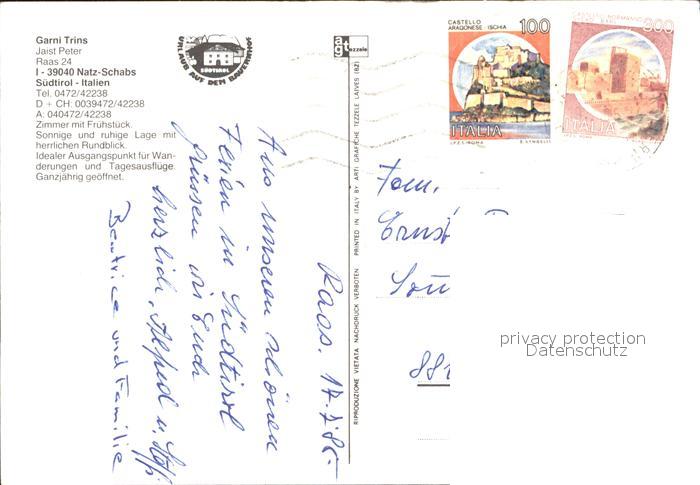 Garni Trins
Jaist Peter
Raas 24
I - 39040 Natz-Schabs
Südtirol - Italien
Tel. 0472/42238
D + CH: 0039472/42238
A: 040472/42238
Zimmer mit Frühstück.
Sonnige und ruhige Lage mit
herrlichen Rundblick.
Idealer Ausgangspunkt für Wan-
derungen und Tagesausflüge.
Ganzjährig geöffnet.
URLAUB AUF DEM BAUERNHOF
SÜDTIROL
Raas, 17.7.86
Aus unseren schönen
Ferien in Südtirol
grüssen wir Euch
herzlich, Alfred u.
Beatrice und Familie
RIPRODUZIONE VIETATA NACHDRUCK VERBOTEN PRINTED IN ITALY BY ARTI GRAFICHE TEZZELE LAIVES (BZ)
agt tezzele
CASTELLO
ARAGONESE - ISCHIA
100
ITALIA
I.P.Z.S. ROMA
CASTELLO NORMANNO
300
ITALIA
Fam.
Ernst
881
privacy protection
Datenschutz